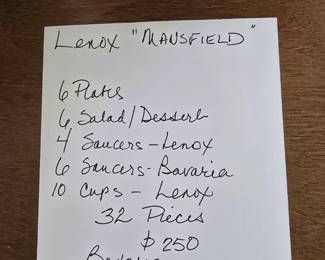 Lenox "MANSFIELD"
6 Plates
6 Salad/Dessert
4 Saucers - Lenox
6 Saucers - Bavaria
10 Cups - Lenox
32 Pieces
$250
Bavaria